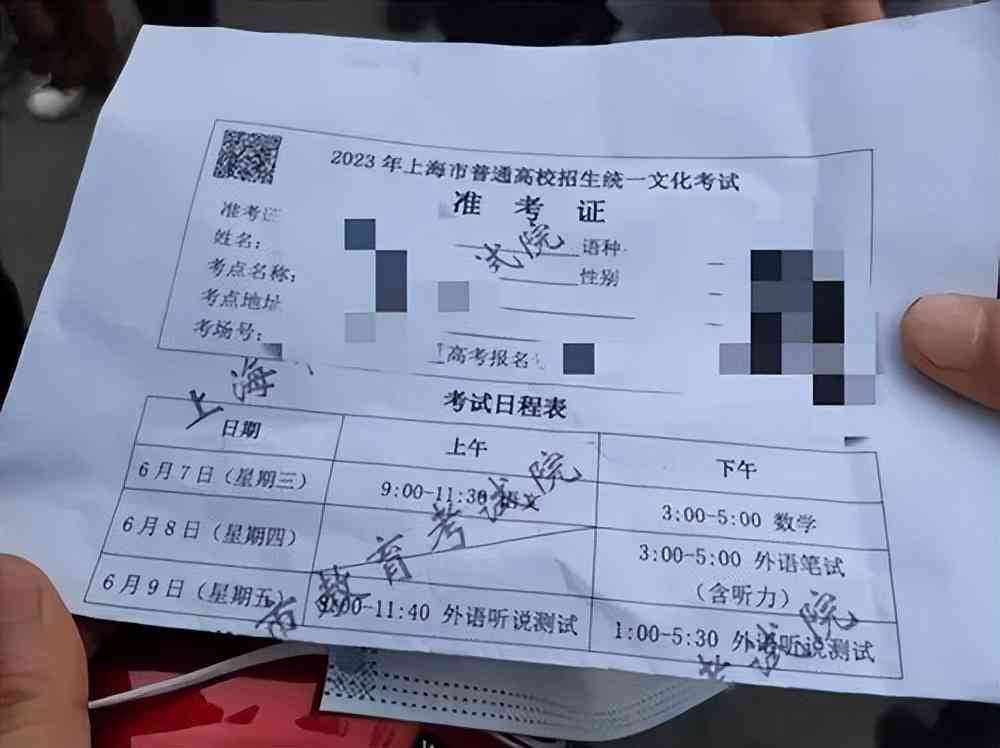 2023年上海市普通高校招生统一文化考试
准考证
准考证
姓名: 语种
考点名称: 性别
考点地址
考场号:
高考报名
上海
试院
考试日程表
日期 上午 下午
6月7日（星期三） 9:00-11:30 语文 3:00-5:00 数学
6月8日（星期四） 3:00-5:00 外语笔试
（含听力）
6月9日（星期五） 9:00-11:40 外语听说测试 1:00-5:30 外语听说测试
市教育考试院
院